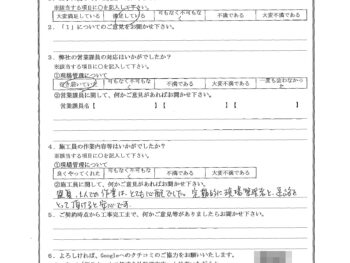 ※該当する項目に○を記入し下さい。
大変満足している 満足している 可もなく不可もなく 不満である 大変不満である
2.「1」についてのご意見をお聞かせ下さい。
3. 弊社の営業課員の対応はいかがでしたか?
※該当する項目に○を記入して下さい。
①現場管理について
行き届いていた 可もなく不可もなく 不満である 大変不満である 一度も会わなかった
②営業課員に関して、何かご意見があればお聞かせ下さい。
営業課員名【 】【 】【 】
4. 施工員の作業内容等はいかがでしたか?
※該当する項目に○を記入して下さい。
①現場管理について
良くやってくれた 可もなく不可もなく 不満である 大変不満である
②施工員に関して、何かご意見があればお聞かせ下さい。
1人での作業は、とても心配でした。定期的に現場管理者と連絡を
とって頂けると安心です。
5. ご契約時点から工事完工まで、何かご意見等がありましたらお聞かせ下さい。
6. よろしければ、Googleへのクチコミのご協力をお願いいたします。